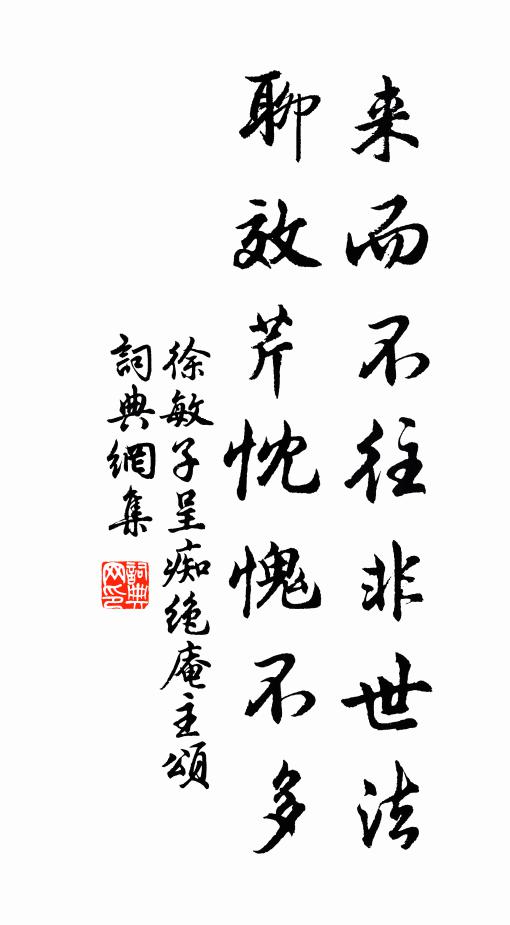 来而不往非世法
聊效芹忱愧不多
徐敏子呈痴绝庵主頌
詞典網集
詞典网印